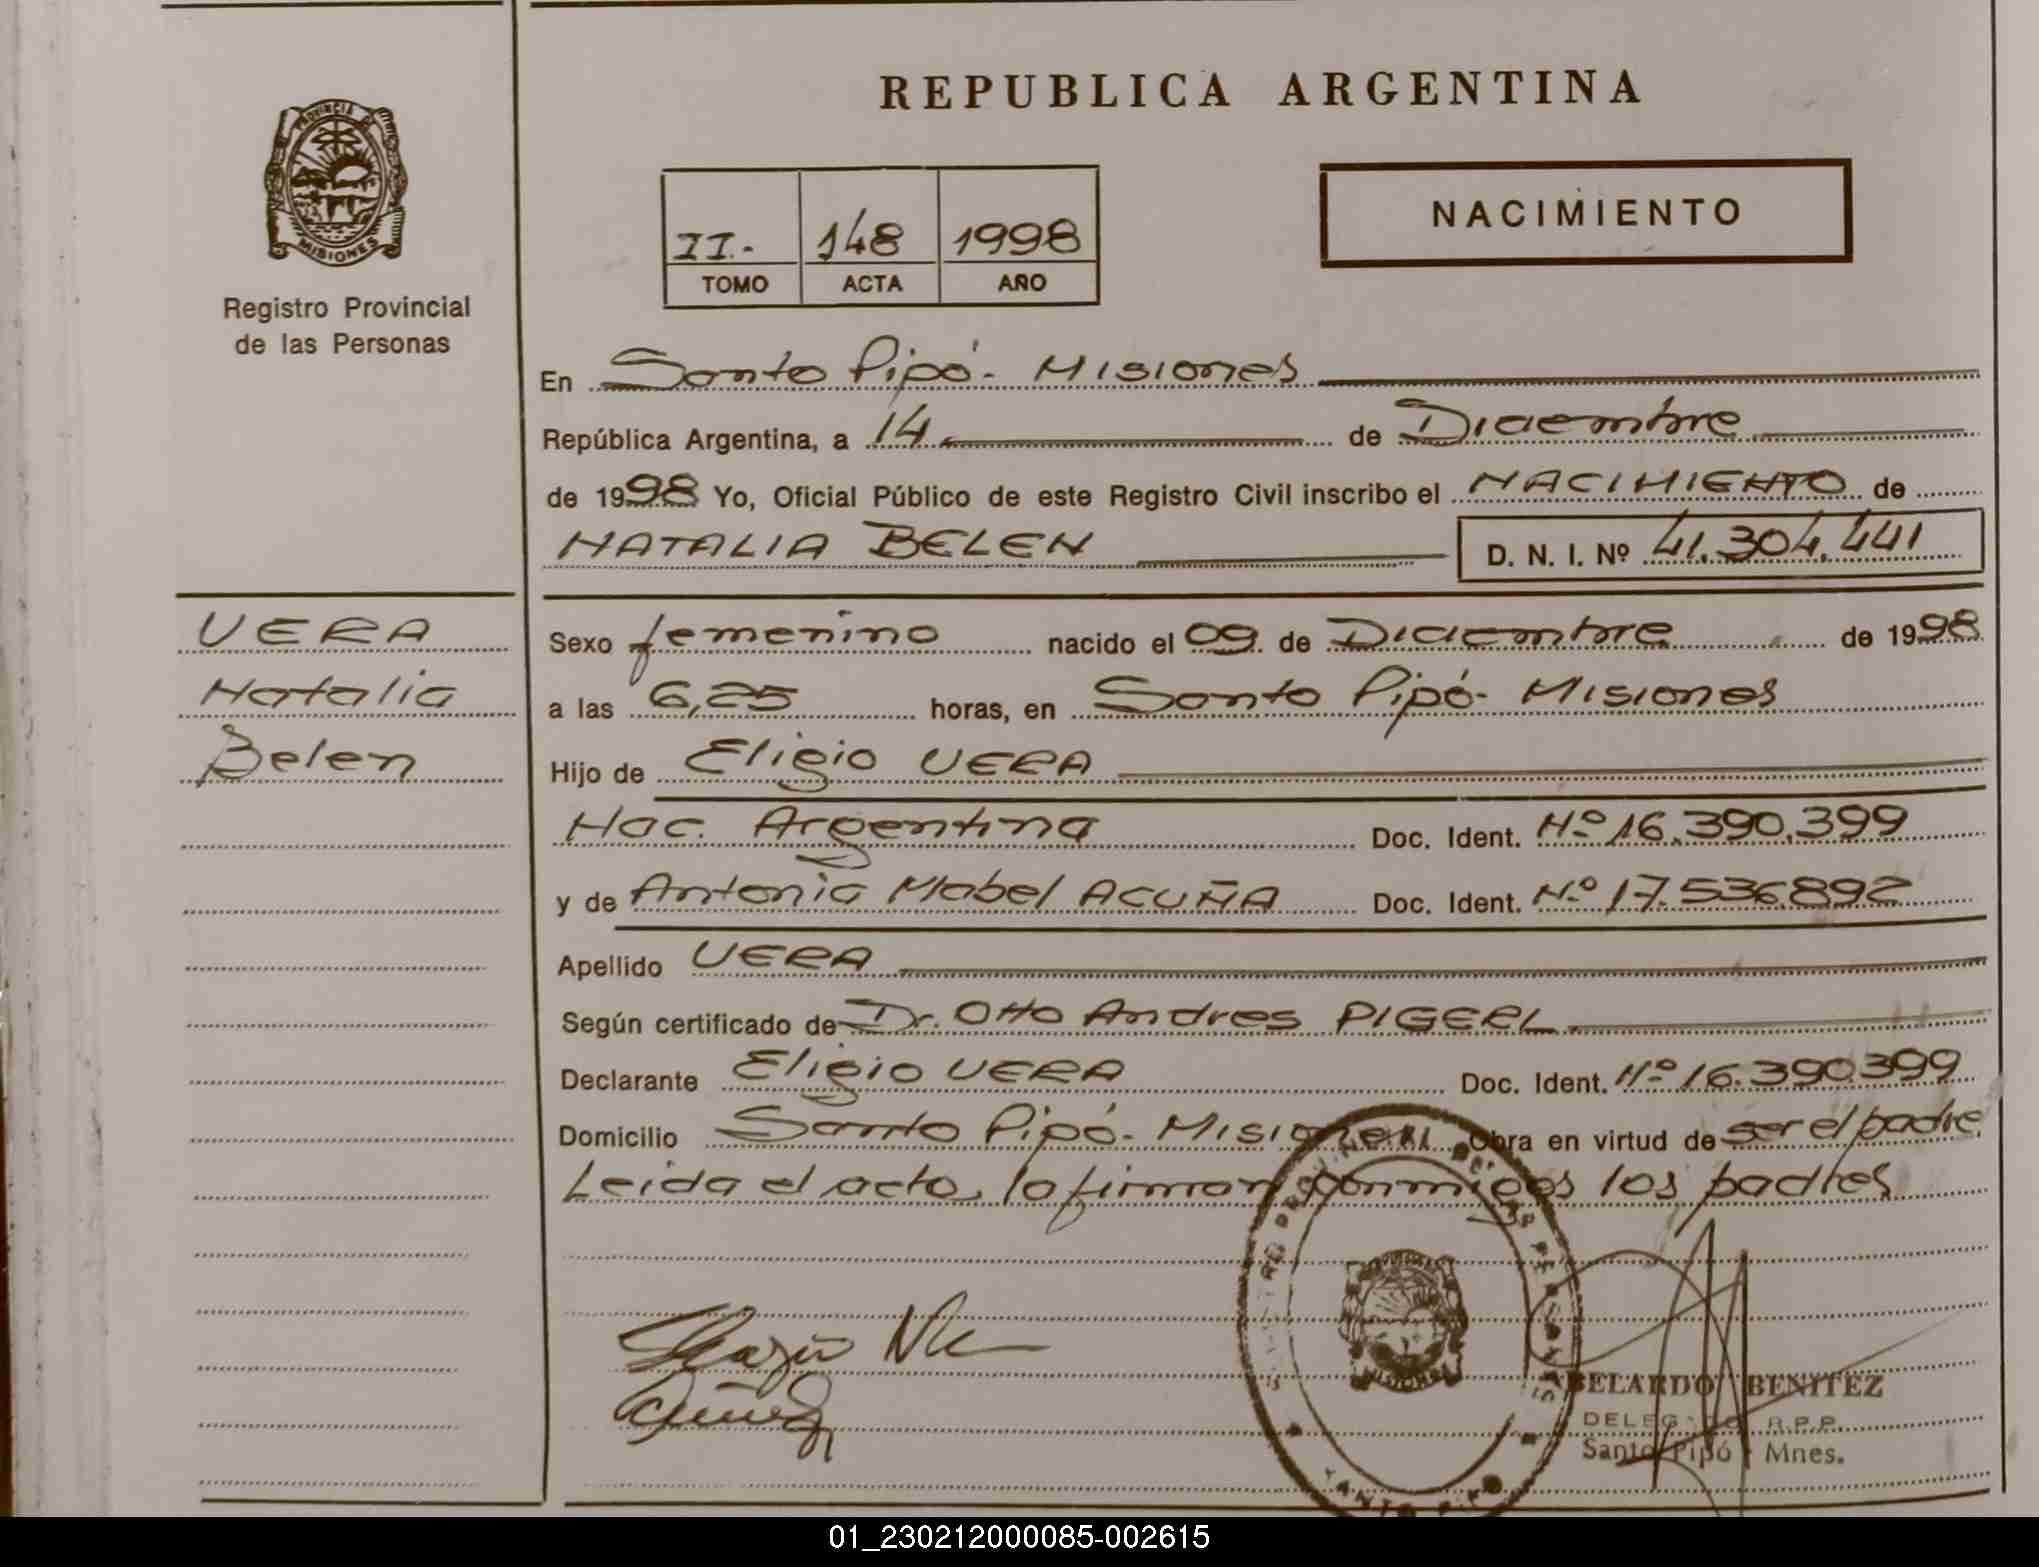 REPUBLICA ARGENTINA
PROVINCIA DE
MISIONES
Registro Provincial
de las Personas
II.- 148 1998
TOMO ACTA AÑO
NACIMIENTO
En Santo Pipó - Misiones
República Argentina, a 14 de Diciembre
de 1998 Yo, Oficial Público de este Registro Civil inscribo el NACIMIENTO de
NATALIA BELEN D. N. I. Nº 41.304.441
VERA
Natalia
Belen
Sexo femenino nacido el 09. de Diciembre de 1998
a las 6,25 horas, en Santo Pipó - Misiones
Hijo de Eligio VERA
Nac. Argentina Doc. Ident. Nº 16.390.399
y de Antonia Mabel ACUÑA Doc. Ident. Nº 17.536.892
Apellido VERA
Según certificado de Dr. Otto Andres PIGERL
Declarante Eligio VERA Doc. Ident. Nº 16.390.399
Domicilio Santo Pipó - Misiones Obra en virtud de ser el padre
Leida el acta, la firman conmigo los padres
MISIONES
BELARDO BENITEZ
DELEGADO R.P.P.
Santo Pipó - Mnes.
01_230212000085-002615